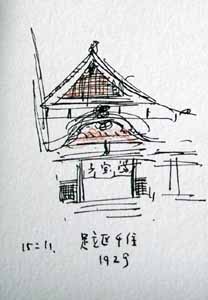 大黒湯
15=11. 足立区千住
1929